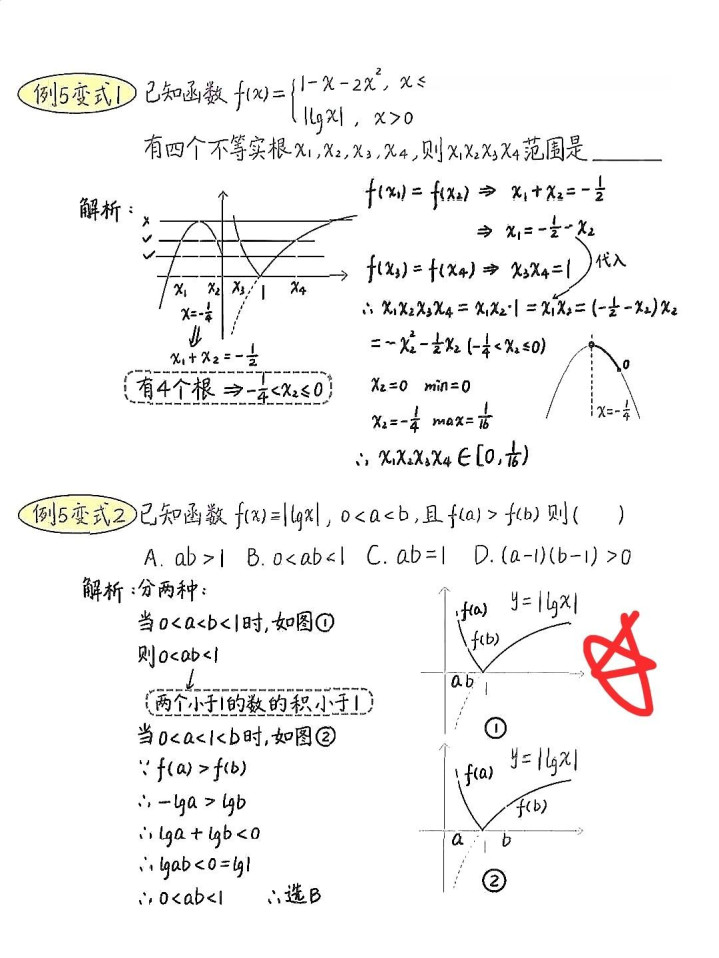 例5变式1 已知函数 f(x)={1-x-2x², x≤
|lgx|, x>0
有四个不等实根x₁,x₂,x₃,x₄,则x₁x₂x₃x₄范围是______
解析:
x
✓
✓
x₁ x₂ x₃ 1 x₄
x=-1/4
⇓
x₁+x₂=-1/2
有4个根⇒-1/4<x₂≤0
f(x₁)=f(x₂) ⇒ x₁+x₂=-1/2
⇒ x₁=-1/2-x₂
f(x₃)=f(x₄) ⇒ x₃x₄=1 代入
∴ x₁x₂x₃x₄=x₁x₂·1=x₁x₂=(-1/2-x₂)x₂
=-x₂²-1/2x₂ (-1/4<x₂≤0)
x₂=0 min=0
x₂=-1/4 max=1/16
0
x=-1/4
∴ x₁x₂x₃x₄∈[0,1/16)
例5变式2 已知函数 f(x)=|lgx|, 0<a<b,且f(a)>f(b)则( )
A. ab>1 B. 0<ab<1 C. ab=1 D. (a-1)(b-1)>0
解析:分两种:
当0<a<b<1时,如图①
则0<ab<1
两个小于1的数的积小于1
当0<a<1<b时,如图②
∵f(a)>f(b)
∴-lga>lgb
∴lga+lgb<0
∴lgab<0=lg1
∴0<ab<1 ∴选B
f(a) y=|lgx|
f(b)
a b 1
①
f(a) y=|lgx|
f(b)
a 1 b
②